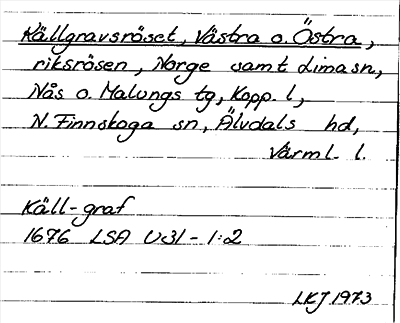 Källgravsröset, Västra o. Östra,
riksrösen, Norge samt Lima sn,
Nås o. Malungs tg, Kopp. l,
N. Finnskoga sn, Älvdals hd,
Värml. l.
Käll-graf
1676 LSA U31-1:2
LKJ 1973